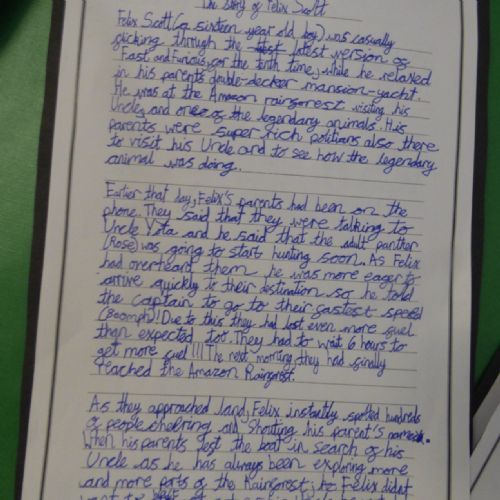 The Story of Felix Scott
Felix Scott (a sixteen year old boy) was casually
flicking through the latest version of
Fast and Furious, for the tenth time, while he relaxed
in his parents double-decker mansion-yacht.
He was at the Amazon rainforest visiting his
Uncle, and one of the legendary animals. His
parents were super rich politians also there
to visit his Uncle and to see how the legendary
animal was doing.
Earlier that day, Felix's parents had been on the
phone. They said that they were talking to
Uncle Yota and he said that the adult panther
(Rose) was going to start hunting soon. As Felix
had overheard them he was more eager to
arrive quickly to their destination so he told
the captain to go to their fastest speed
(800mph)! Due to this they had lost even more fuel
than expected to. They had to wait 6 hours to
get more fuel!!! The next morning they had finally
reached the Amazon Rainforest.
As they approached land, Felix instantly spotted hundreds
of people cheering and shouting his parent's
When his parents left the boat in search of his
Uncle as he has always been exploring more
and more parts of the Rainforest, to Felix didn't